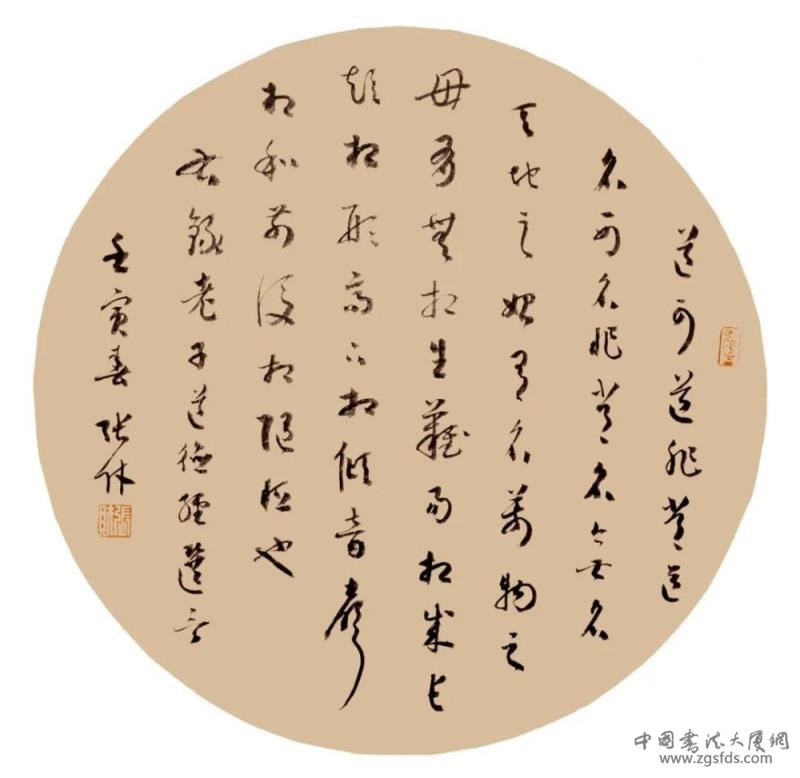 道可道非常道
名可名非常名无名
天地之始有名萬物之
母有無相生難易相成長
短相形高下相傾音聲
相和前後相随恒也
右錄老子道德經
壬寅春张休
中國書法大廈網
www.zgsfds.com